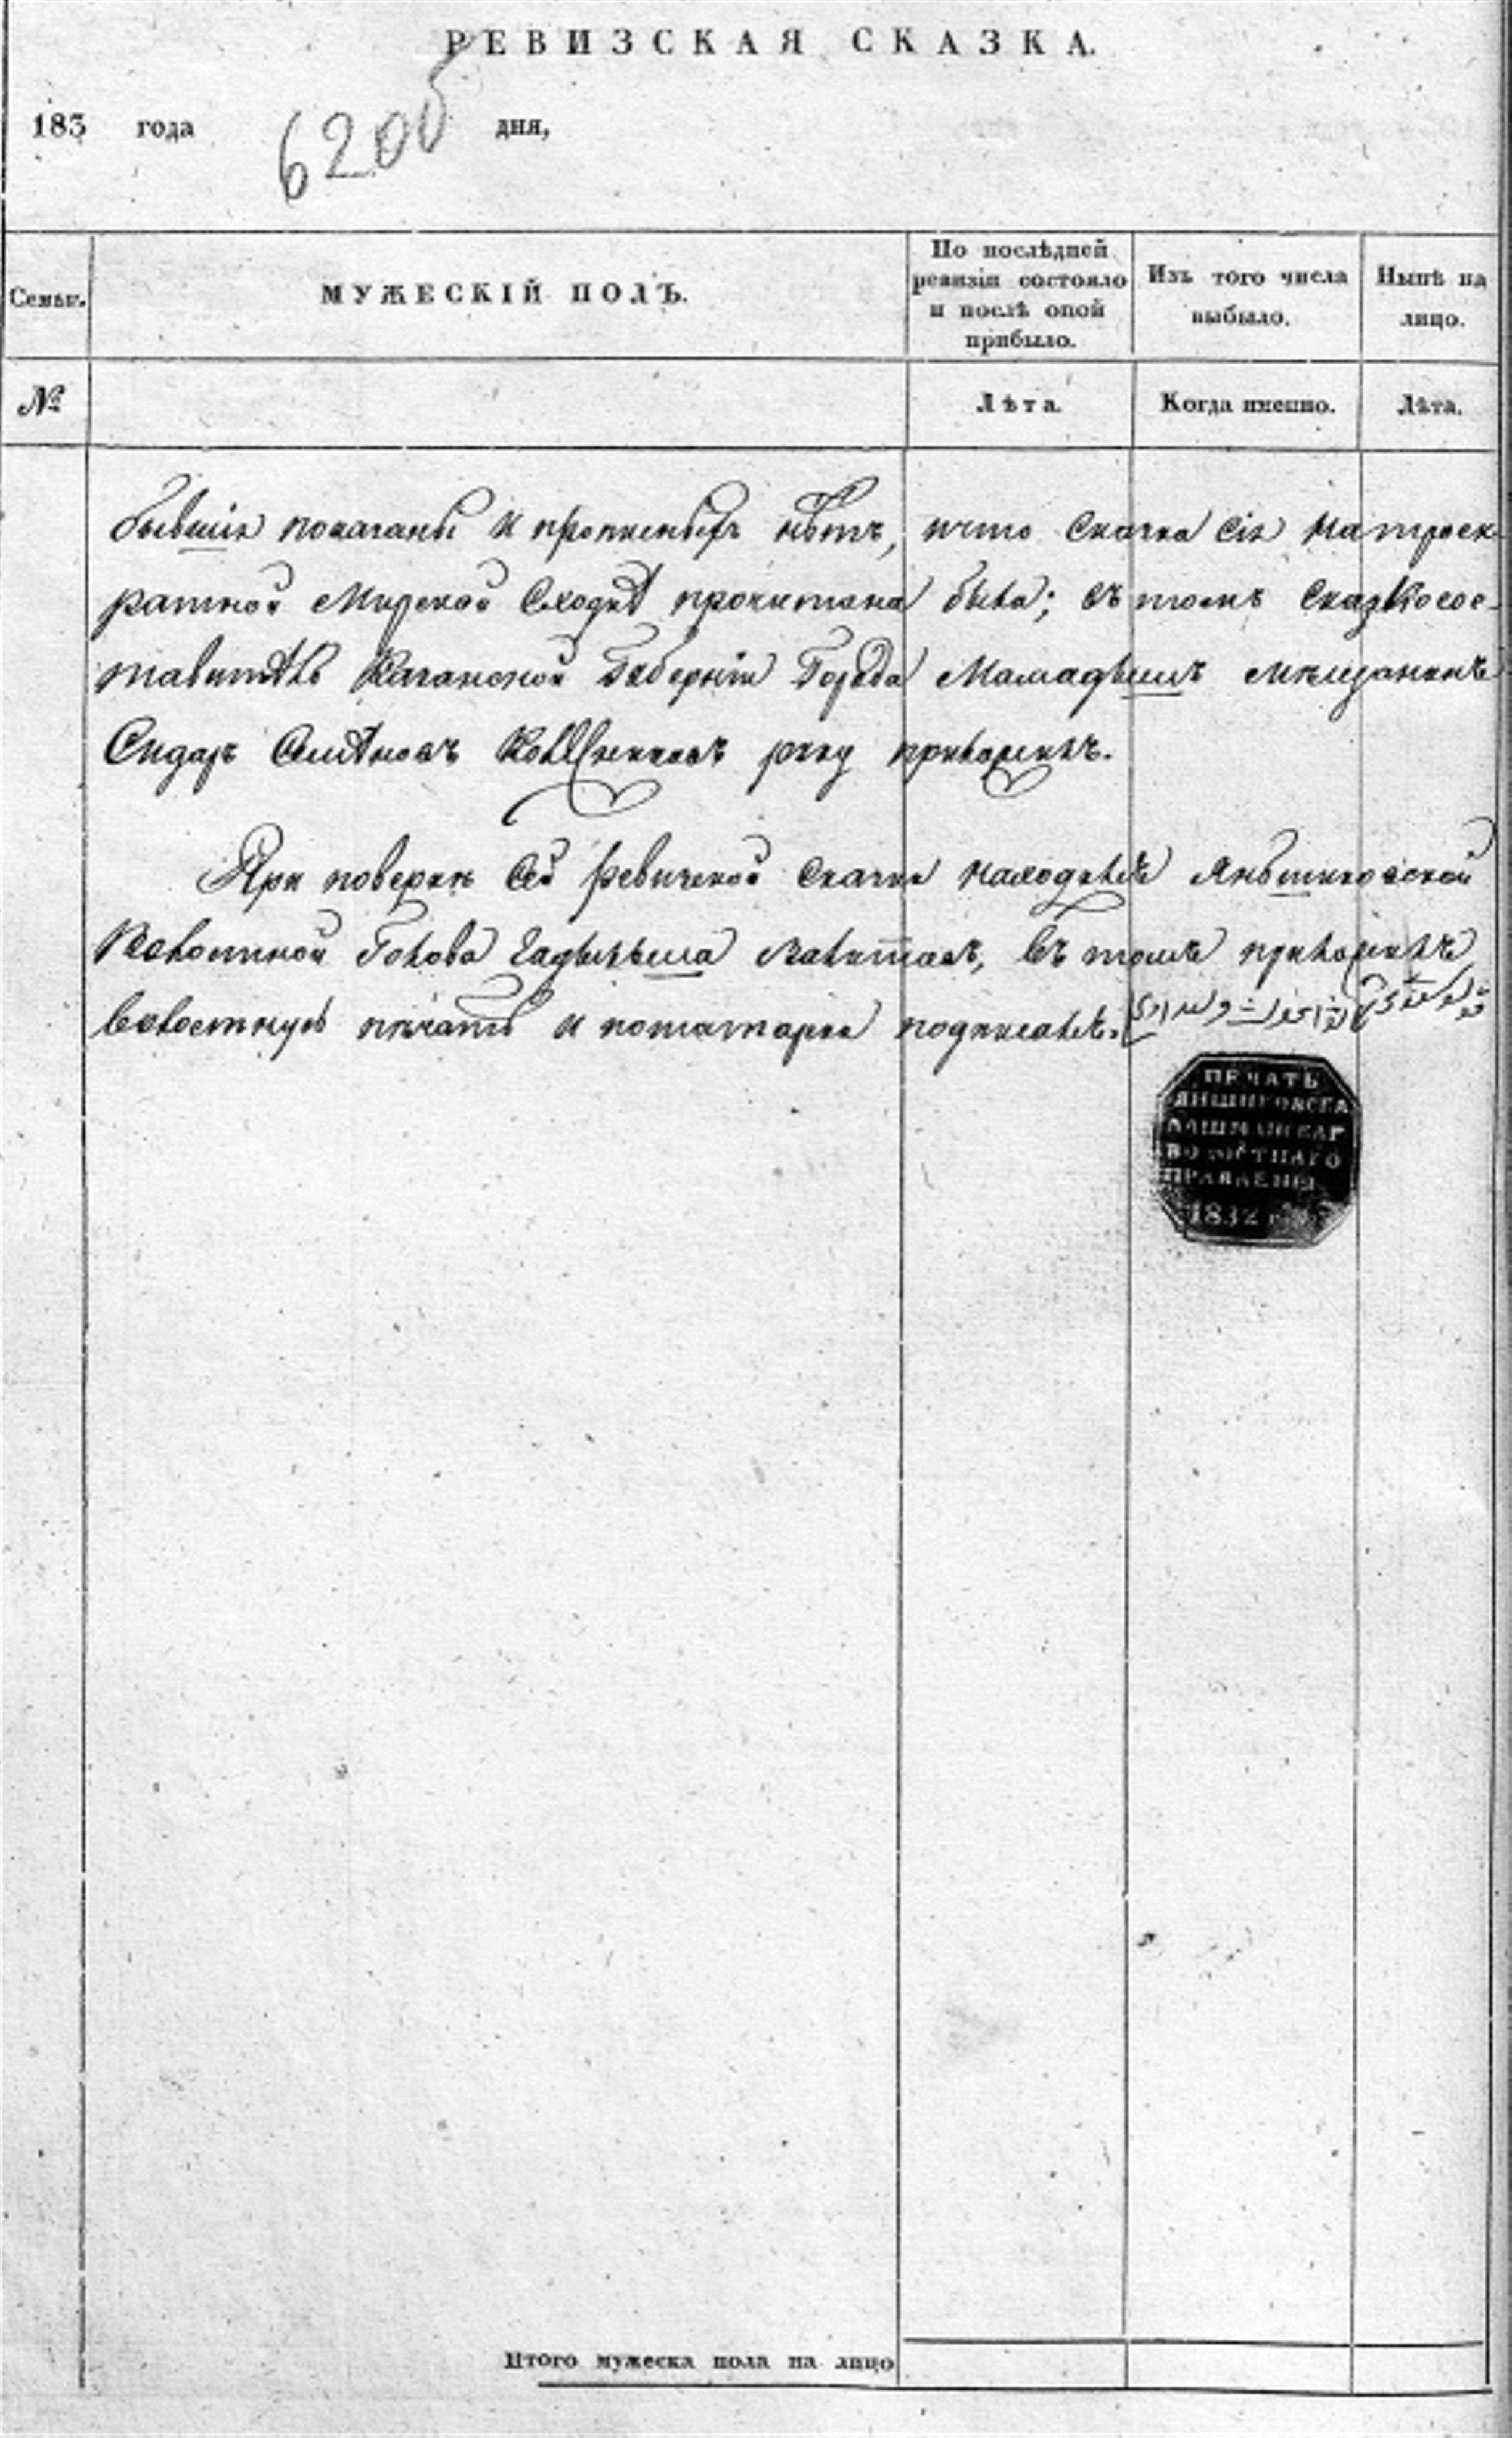 РЕВИЗСКАЯ СКАЗКА.
183 года 620об дня,
Семьи.
МУЖЕСКІЙ ПОЛЪ.
По послѣдней ревизіи состояло и послѣ оной прибыло.
Изъ того числа выбыло.
Нынѣ на лицо.
№
Лѣта.
Когда именно.
Лѣта.
бывшія показаны и прописныхъ нѣтъ, что сказка сія на троек
ратной Мирской Сходкѣ прочитана была; въ томъ Сказкосос
тавитель Казанской Губерніи Города Мамадышъ мѣщанинъ
Сидар руку приложилъ.
При поверки сей ревизской сказки находился Янышиковской
волостной Голова въ томъ приложилъ
волостную печать и потатарски подписался.
ПЕЧАТЬ
ЯНШИКОВСКА
ЛАШМАНСКАГ
ВОЛОСТНАГО
ПРАВЛЕНІЯ
1832 г
Итого мужеска пола на лицо